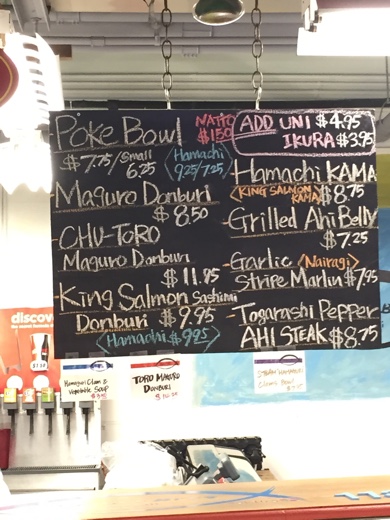 Poke Bowl
NATTO
$1.50
$7.75/Small
6.25
Hamachi
9.25/7.25
Maguro Donburi
$8.50
-CHU-TORO
Maguro Donburi
$11.95
-King Salmon Sashimi
Donburi $9.95
Hamachi $9.95
ADD UNI $4.95
IKURA $3.95
Hamachi KAMA
KING SALMON
KAMA
$8.75
-Grilled Ahi Belly
$7.25
-Garlic <Nairagi>
Stripe Marlin $7.95
-Togarashi Pepper
AHI STEAK $8.75
discov
Hamaguri Clam &
Vegetable Soup
TORO MAGURO
DONBURI